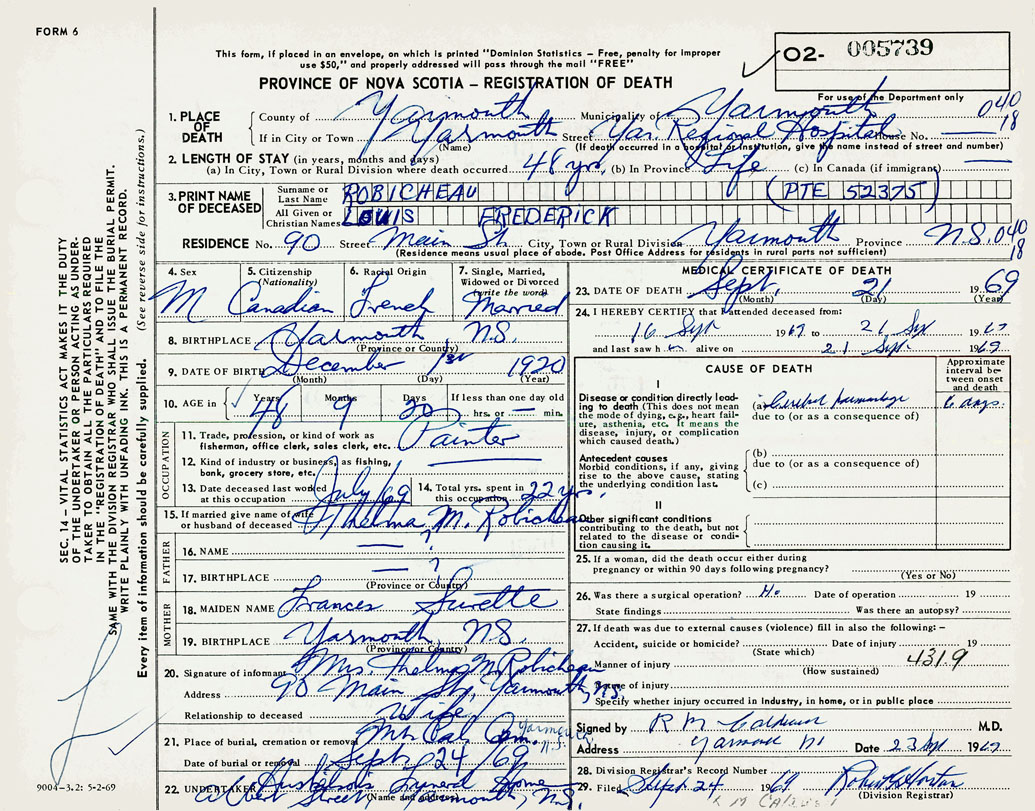 FORM 6
This form, if placed in an envelope, on which is printed "Dominion Statistics – Free, penalty for improper
use $50," and properly addressed will pass through the mail "FREE"
PROVINCE OF NOVA SCOTIA – REGISTRATION OF DEATH
O2- 005739
For use of the Department only
040
18
1. PLACE OF DEATH County of Yarmouth Municipality of Yarmouth
If in City or Town Yarmouth Street Yar. Regional Hospital House No.
(Name) (If death occurred in a hospital or institution, give the name instead of street and number)
2. LENGTH OF STAY (in years, months and days)
(a) In City, Town or Rural Division where death occurred 48 yrs. (b) In Province Life (c) In Canada (if immigrant)
3. PRINT NAME OF DECEASED Surname or Last Name ROBICHEAU (PTE 52375)
All Given or Christian Names LOUIS FREDERICK
RESIDENCE No. 90 Street Main St. City, Town or Rural Division Yarmouth Province N.S. 040
18
(Residence means usual place of abode. Post Office Address for residents in rural parts not sufficient)
4. Sex M
5. Citizenship (Nationality) Canadian
6. Racial Origin French
7. Single, Married, Widowed or Divorced (write the word) Married
8. BIRTHPLACE Yarmouth N.S.
(Province or Country)
9. DATE OF BIRTH December 1st 1920
(Month) (Day) (Year)
10. AGE in Years 48 Months 9 Days 20 If less than one day old
hrs. or min.
OCCUPATION
11. Trade, profession, or kind of work as fisherman, office clerk, sales clerk, etc. Painter
12. Kind of industry or business, as fishing, bank, grocery store, etc.
13. Date deceased last worked at this occupation July/69
14. Total yrs. spent in this occupation 22 yrs.
15. If married give name of wife or husband of deceased Thelma M. Robicheau
FATHER
16. NAME — ?
17. BIRTHPLACE — ?
(Province or Country)
MOTHER
18. MAIDEN NAME Frances Surette
19. BIRTHPLACE Yarmouth N.S.
(Province or Country)
20. Signature of informant Mrs. Thelma M. Robicheau
Address 90 Main St., Yarmouth, N.S.
Relationship to deceased Wife
21. Place of burial, cremation or removal Mt. Cem. Yarmouth N.S.
Date of burial or removal Sept 24/69
22. UNDERTAKER Funeral Home
(Name and address) Street Yarmouth, N.S.
MEDICAL CERTIFICATE OF DEATH
23. DATE OF DEATH Sept. 21 1969
(Month) (Day) (Year)
24. I HEREBY CERTIFY that I attended deceased from:
16 Sept 1969 to 21 Sep 1969
and last saw him alive on 21 Sept. 1969
CAUSE OF DEATH
Approximate interval between onset and death
I
Disease or condition directly leading to death (This does not mean the mode of dying, e.g., heart failure, asthenia, etc. It means the disease, injury, or complication which caused death.)
(a) Cerebral haemorrhage 6 days.
due to (or as a consequence of)
Antecedent causes
Morbid conditions, if any, giving rise to the above cause, stating the underlying condition last.
(b)
due to (or as a consequence of)
(c)
II
Other significant conditions
contributing to the death, but not related to the disease or condition causing it.
25. If a woman, did the death occur either during pregnancy or within 90 days following pregnancy?
(Yes or No)
26. Was there a surgical operation? No Date of operation 19
State findings Was there an autopsy?
27. If death was due to external causes (violence) fill in also the following: –
Accident, suicide or homicide? Date of injury 19
(State which)
Manner of injury 431.9
(How sustained)
Nature of injury
Specify whether injury occurred in Industry, in home, or in public place
Signed by R M M.D.
Address Yarmouth NS Date 23 Sept 1969
28. Division Registrar's Record Number
29. Filed Sept. 24 1969
(Division Registrar)
SEC. 14 – VITAL STATISTICS ACT MAKES IT THE DUTY
OF THE UNDERTAKER OR PERSON ACTING AS UNDER-
TAKER TO OBTAIN ALL THE PARTICULARS REQUIRED
IN THE "REGISTRATION OF DEATH" AND TO FILE THE
SAME WITH THE DIVISION REGISTRAR WHO SHALL ISSUE THE BURIAL PERMIT.
WRITE PLAINLY WITH UNFADING INK. THIS IS A PERMANENT RECORD.
Every item of information should be carefully supplied. (See reverse side for instructions.)
9004-3.2: 5-2-69